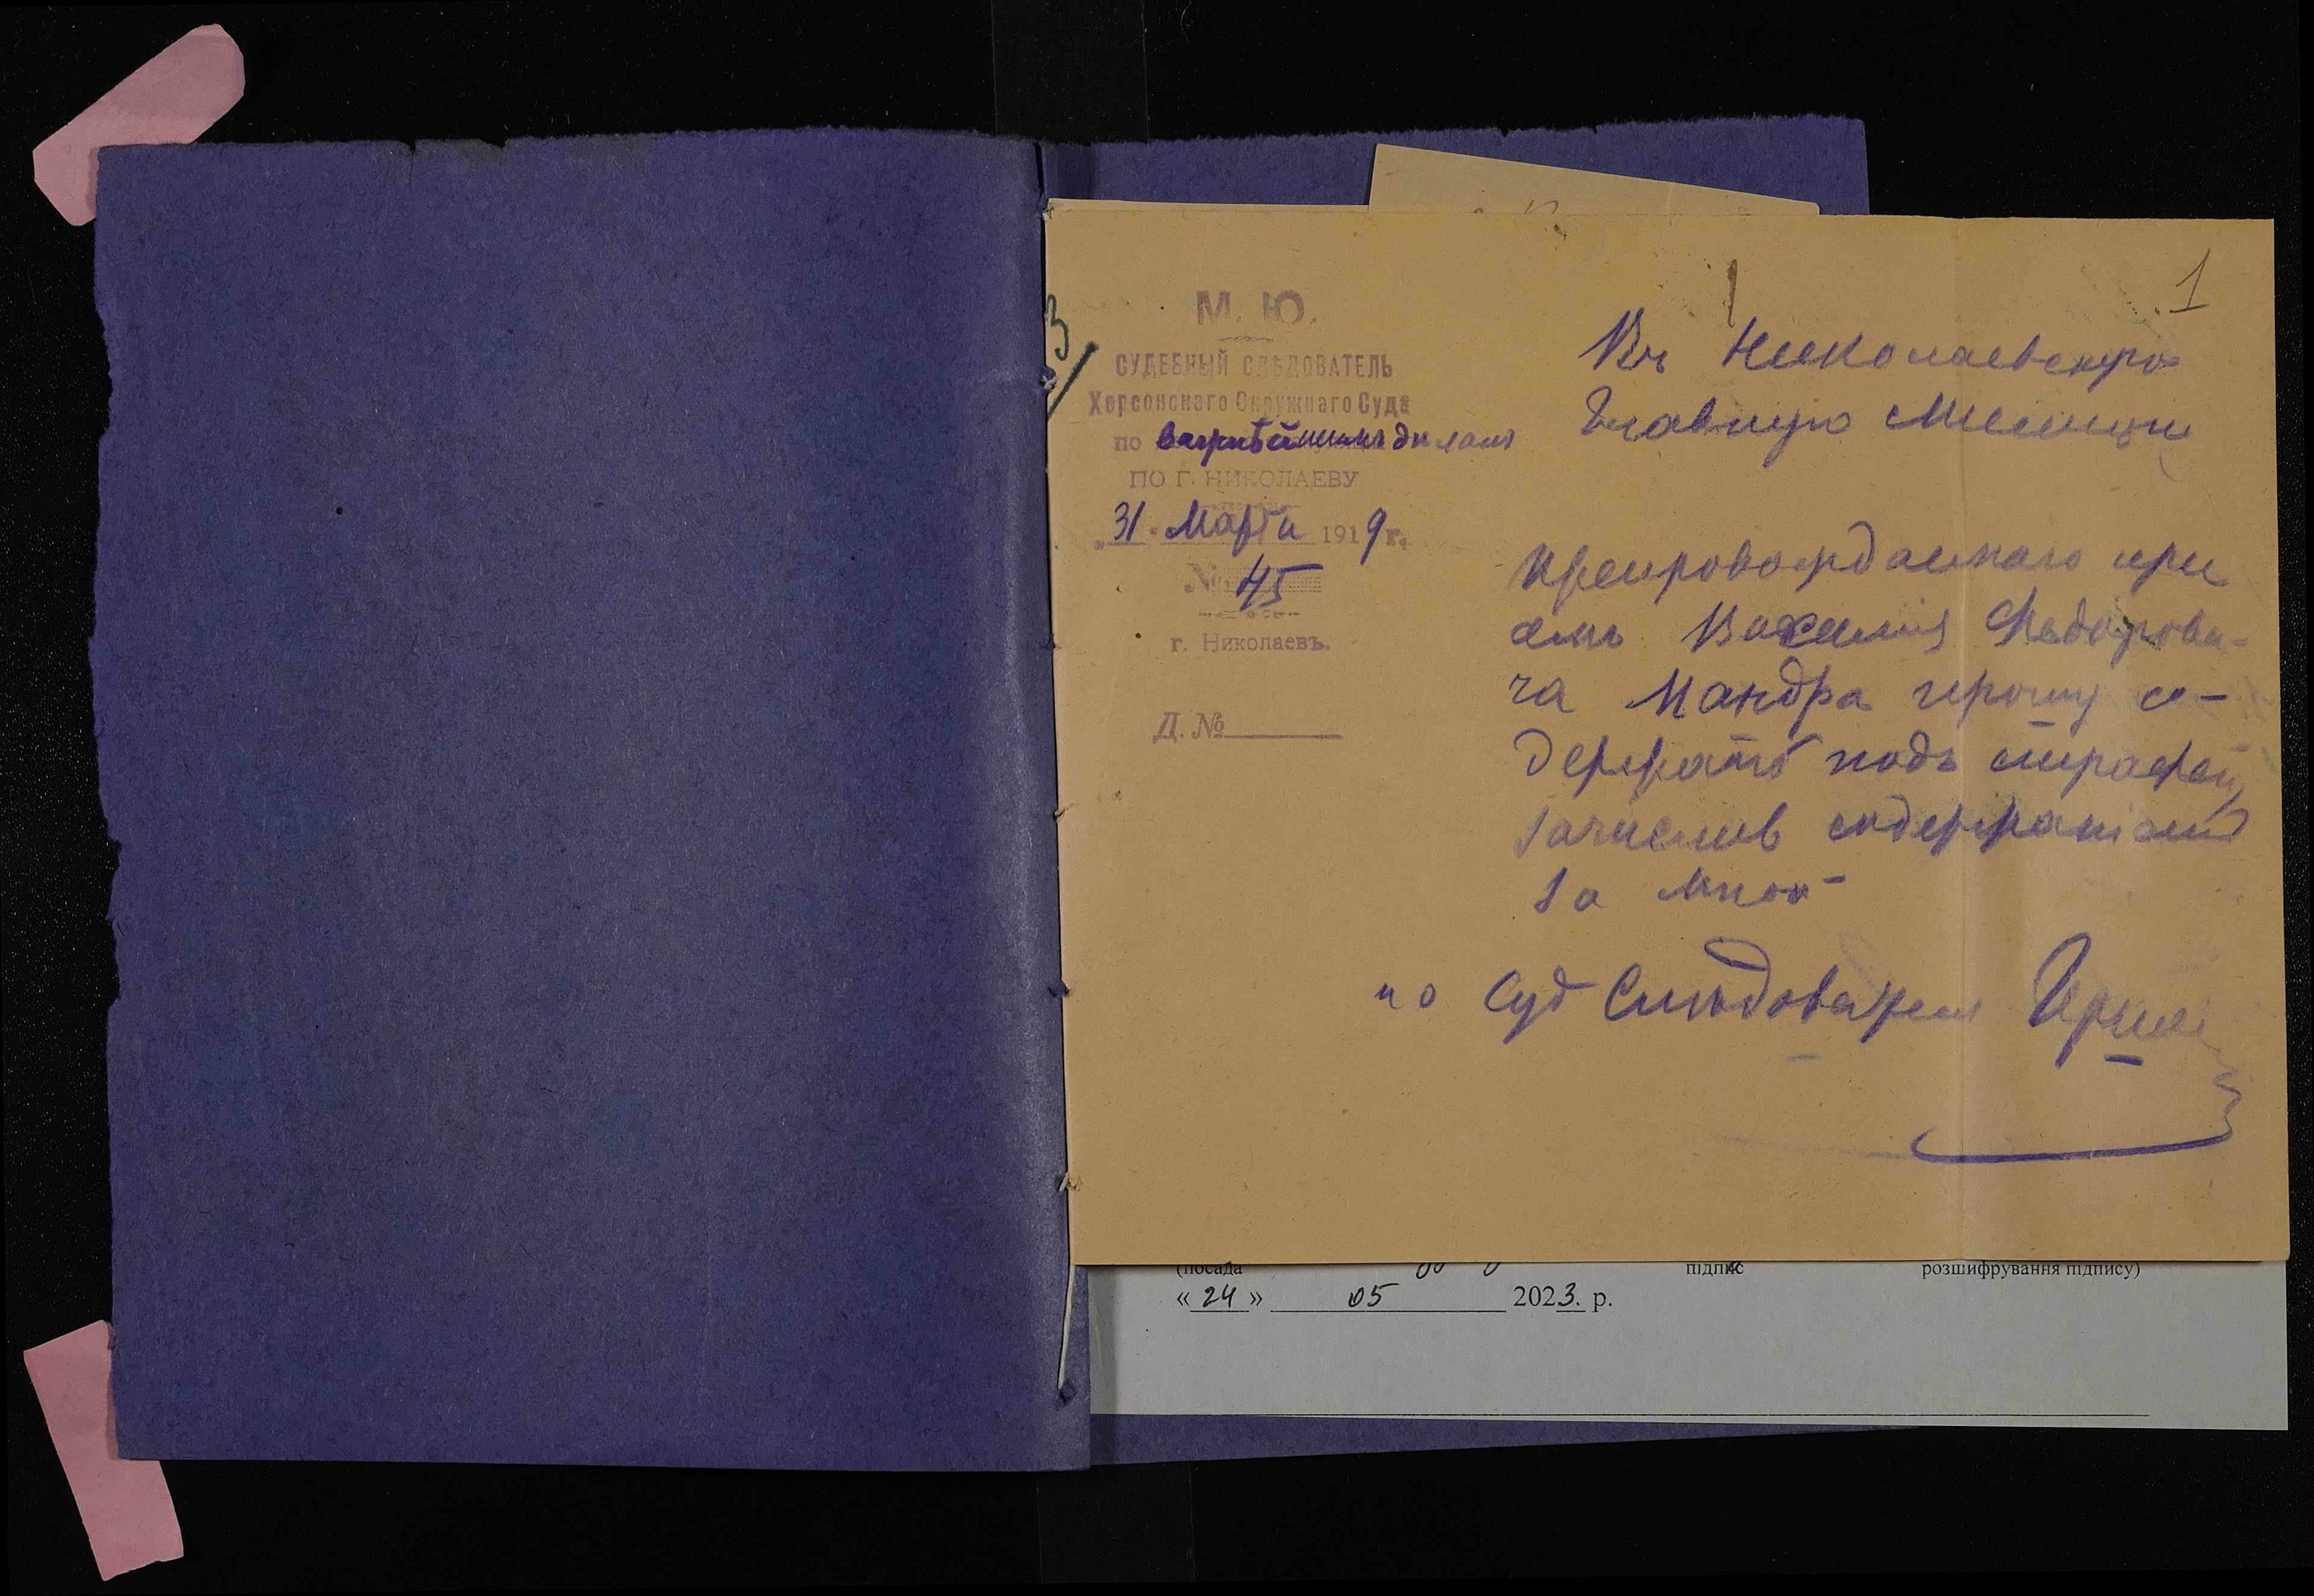 3
М. Ю.
СУДЕБНЫЙ СЛѢДОВАТЕЛЬ
Херсонскаго Окружнаго Суда
по важнѣйшимъ дѣламъ
ПО Г. НИКОЛАЕВУ
„31" Марта 1919 г.
№ 45
г. Николаевъ.
Д. №
1
Въ Николаевскую
Главную Милицію
Препровождаемаго при
семъ Василія Федорови-
ча Мандра прошу со-
держать подъ стражей
зачислив содержаніем
за мной
и о Суд Слѣдователя
(посада
підпис
розшифрування підпису)
« 24 » 05 2023. р.